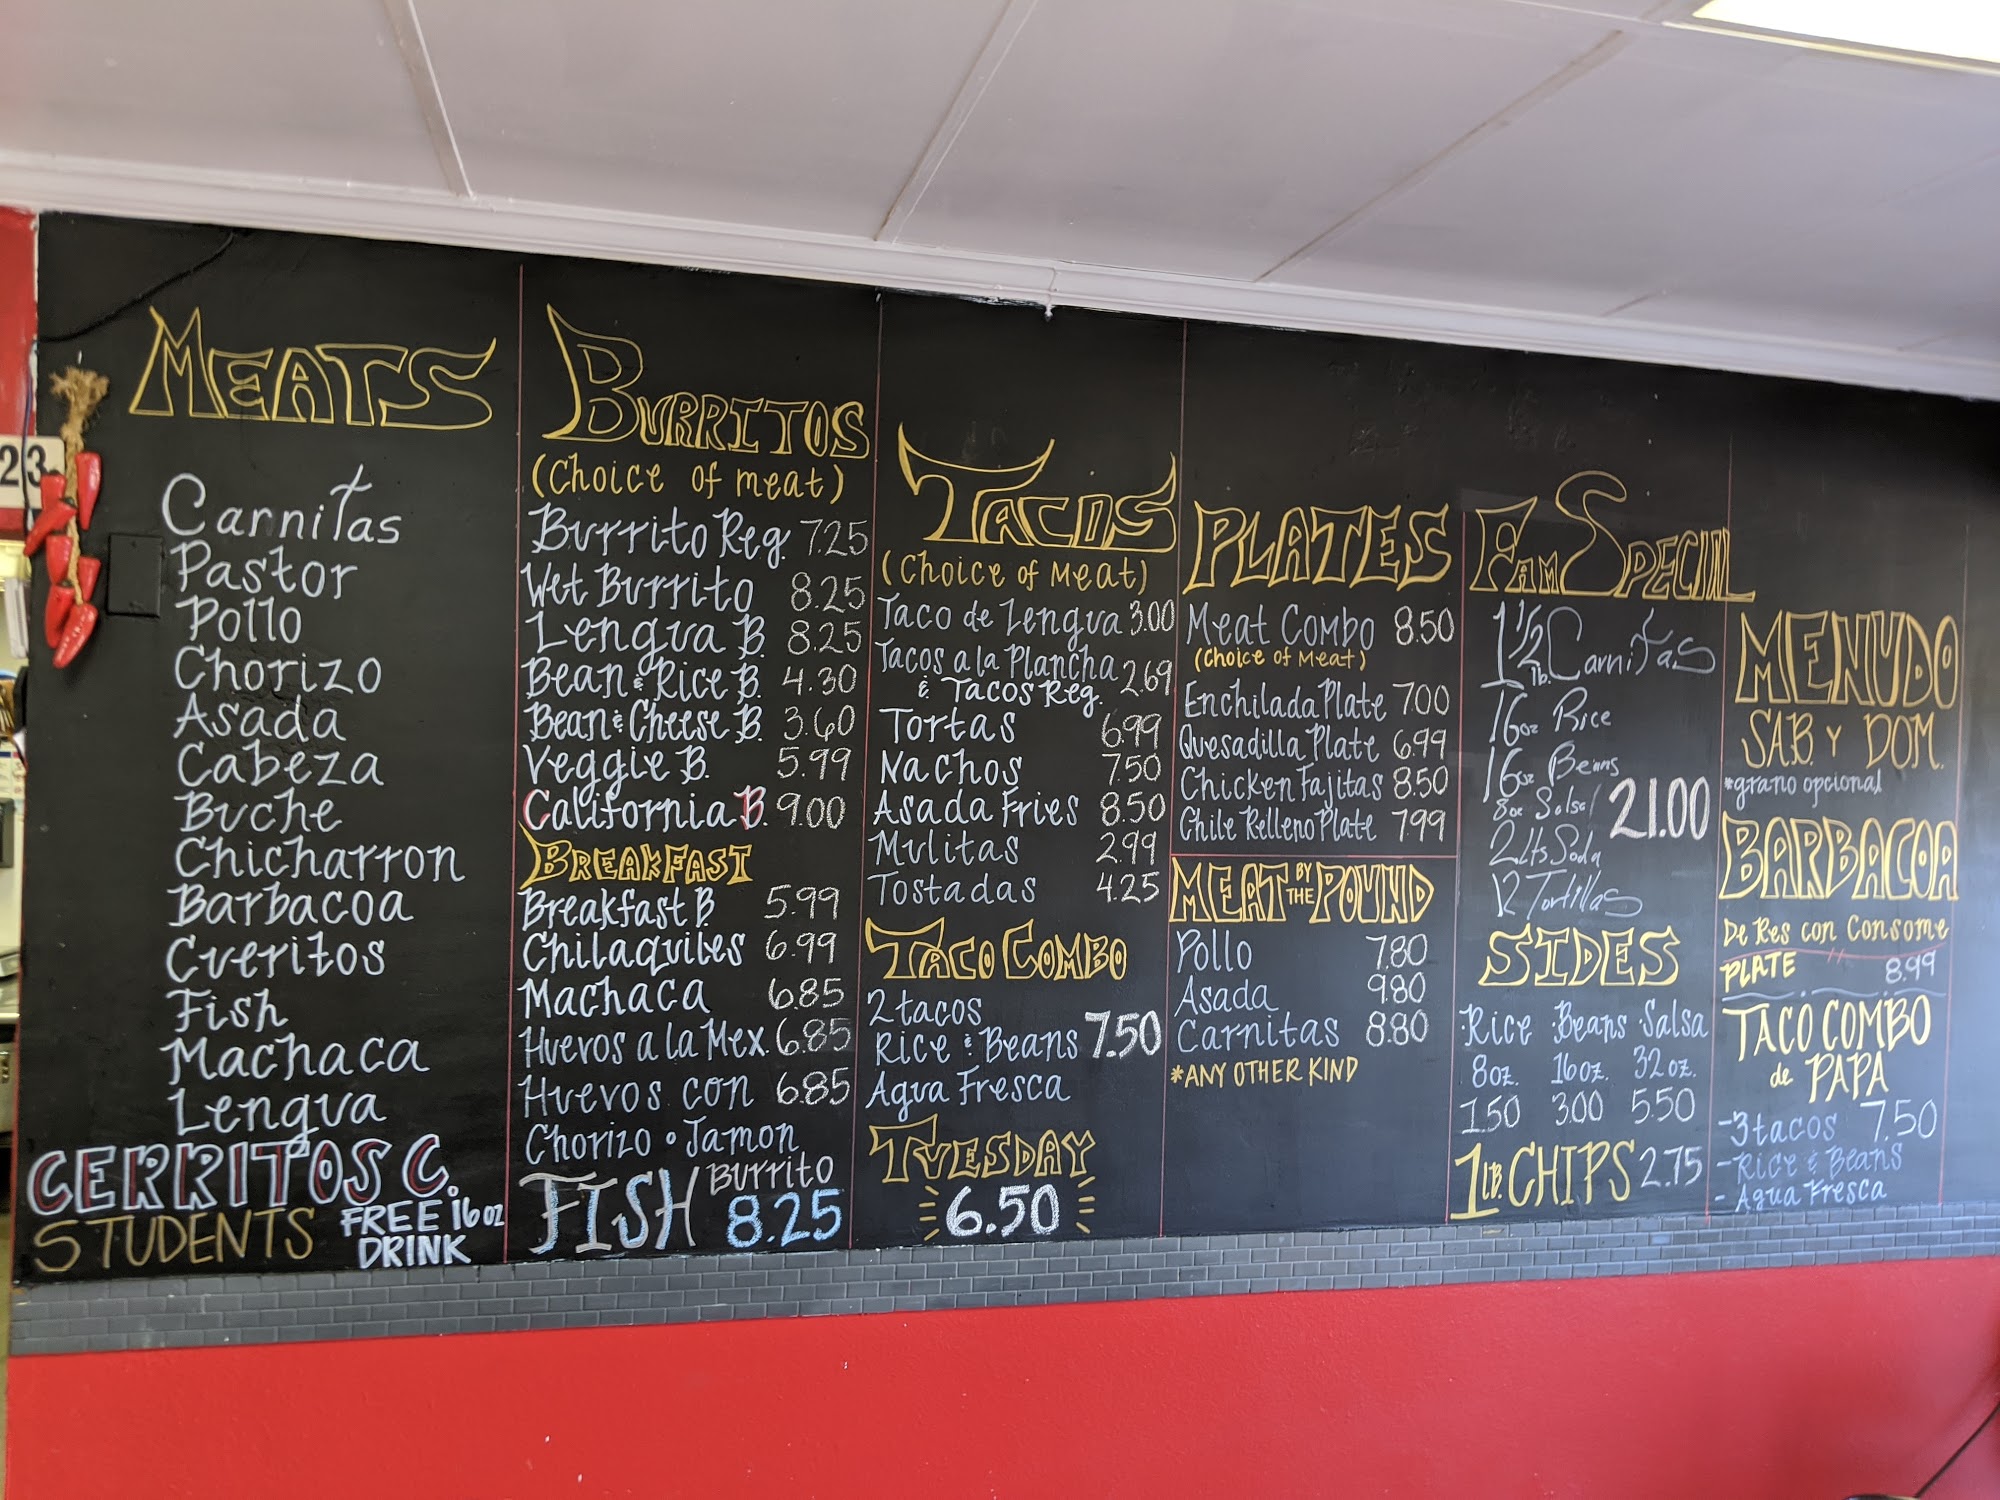 23
MEATS
Carnitas
Pastor
Pollo
Chorizo
Asada
Cabeza
Buche
Chicharron
Barbacoa
Cueritos
Fish
Machaca
Lengua
CERRITOS C.
STUDENTS FREE 16 oz
DRINK
BURRITOS
(Choice of meat)
Burrito Reg. 7.25
Wet Burrito 8.25
Lengua B. 8.25
Bean & Rice B. 4.30
Bean & Cheese B. 3.60
Veggie B. 5.99
California B. 9.00
BREAKFAST
Breakfast B. 5.99
Chilaquiles 6.99
Machaca 6.85
Huevos a la Mex. 6.85
Huevos con 6.85
Chorizo o Jamon
FISH Burrito
8.25
TACOS
(Choice of Meat)
Taco de Lengua 3.00
Tacos a la Plancha
& Tacos Reg. 2.69
Tortas 6.99
Nachos 7.50
Asada Fries 8.50
Mulitas 2.99
Tostadas 4.25
TACO COMBO
2 tacos
Rice & Beans 7.50
Agua Fresca
TUESDAY
6.50
PLATES
Meat Combo 8.50
(Choice of Meat)
Enchilada Plate 7.00
Quesadilla Plate 6.99
Chicken Fajitas 8.50
Chile Relleno Plate 7.99
MEAT BY THE POUND
Pollo 7.80
Asada 9.80
Carnitas 8.80
*ANY OTHER KIND
FAM SPECIAL
1 1/2 lb. Carnitas
16oz Rice
16oz Beans
8oz Salsa 21.00
2 Lts Soda
12 Tortillas
SIDES
Rice Beans Salsa
8oz. 16oz. 32oz.
1.50 3.00 5.50
1LB. CHIPS 2.75
MENUDO
SAB. Y DOM.
*grano opcional
BARBACOA
De Res con Consome
PLATE 8.99
TACO COMBO
de PAPA
-3 tacos 7.50
-Rice & Beans
- Agua Fresca